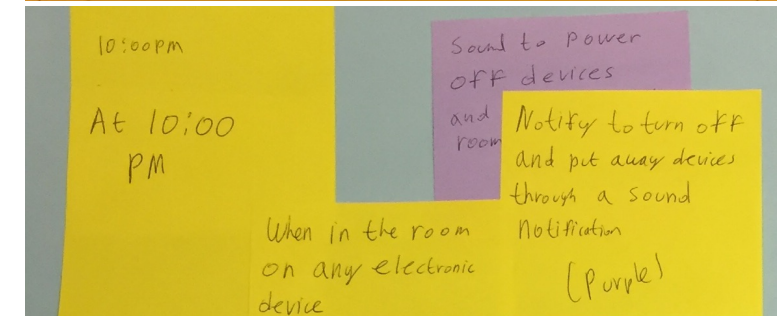 10:00pm
At 10:00
PM
Sound to power
off devices
and
room
Notify to turn off
and put away devices
through a sound
notification
(Purple)
When in the room
on any electronic
device